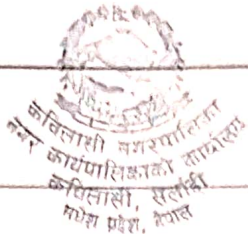 कविलासी नगरपालिका
नगर कार्यपालिकाको कार्यालय
कविलासी, सर्लाही
मधेश प्रदेश, नेपाल